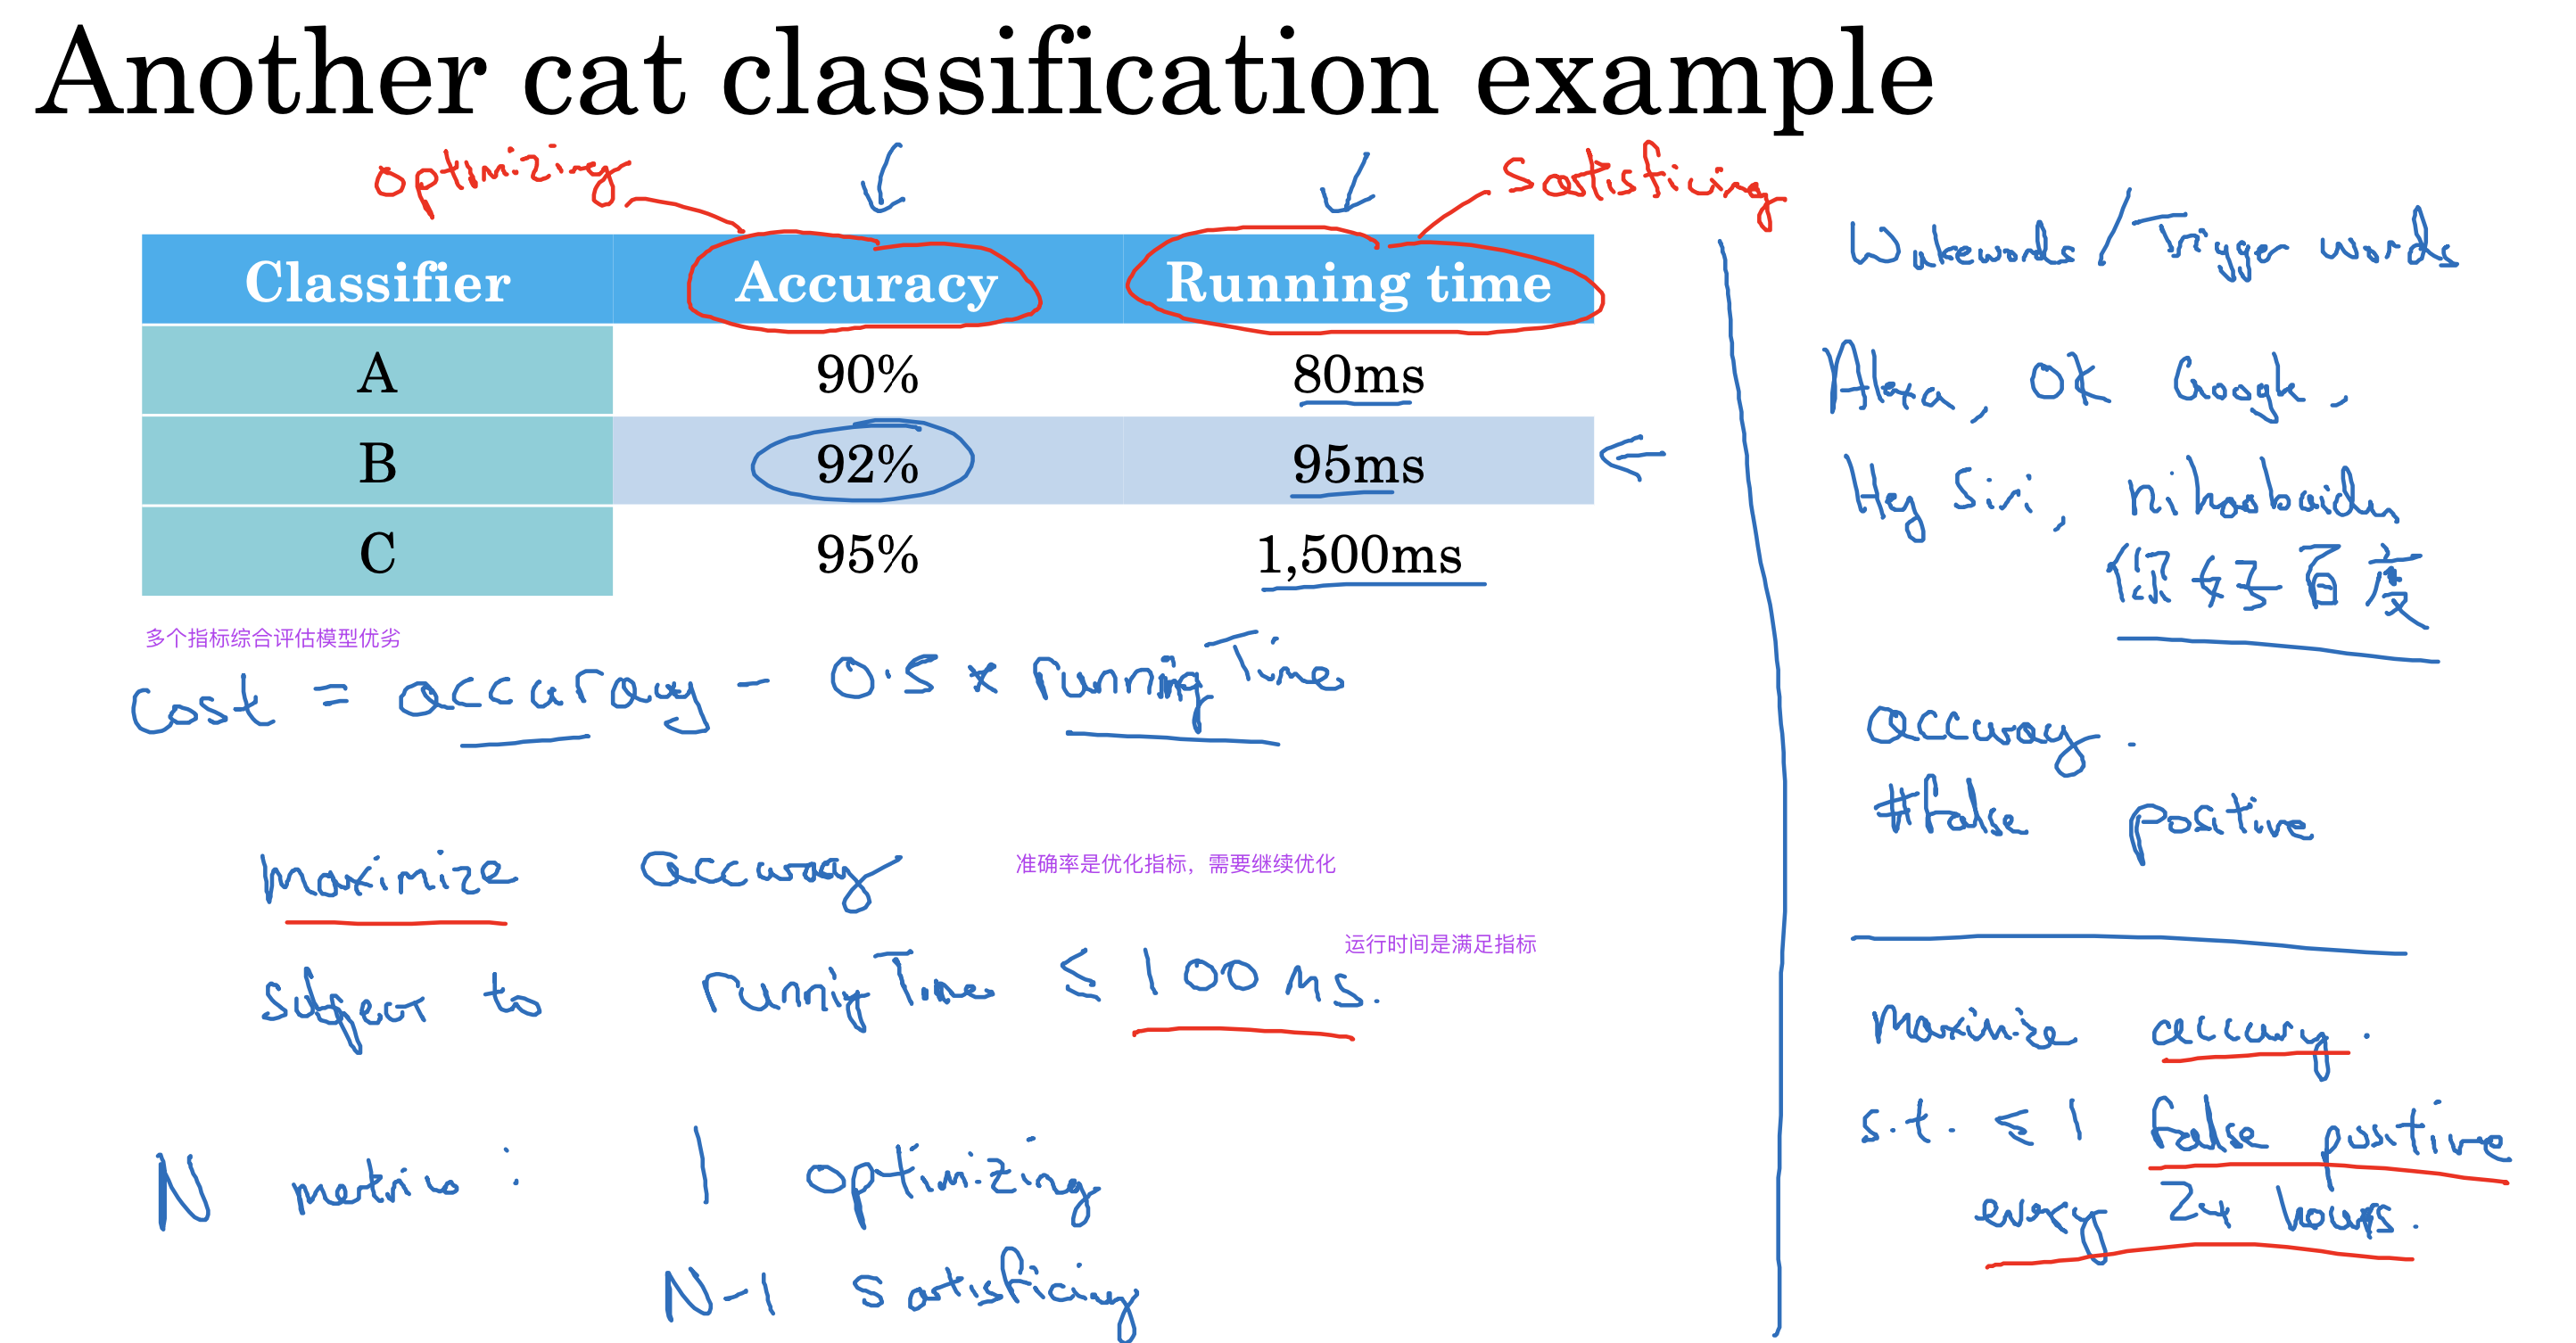 Another cat classification example
optimizing
Satisficing
Classifier Accuracy Running time
A 90% 80ms
B 92% 95ms
C 95% 1,500ms
多个指标综合评估模型优劣
Cost = accuracy - 0.5 x runningTime
maximize accuracy
准确率是优化指标，需要继续优化
subject to runningTime ≤ 100 ms.
运行时间是满足指标
N metrics: 1 optimizing
N-1 satisficing
Wakewords / Trigger words
Alexa, OK Google,
Hey Siri, nihaobaidu
你好百度
accuracy.
#false positive
maximize accuracy.
s.t. ≤ 1 false positive
every 24 hours.